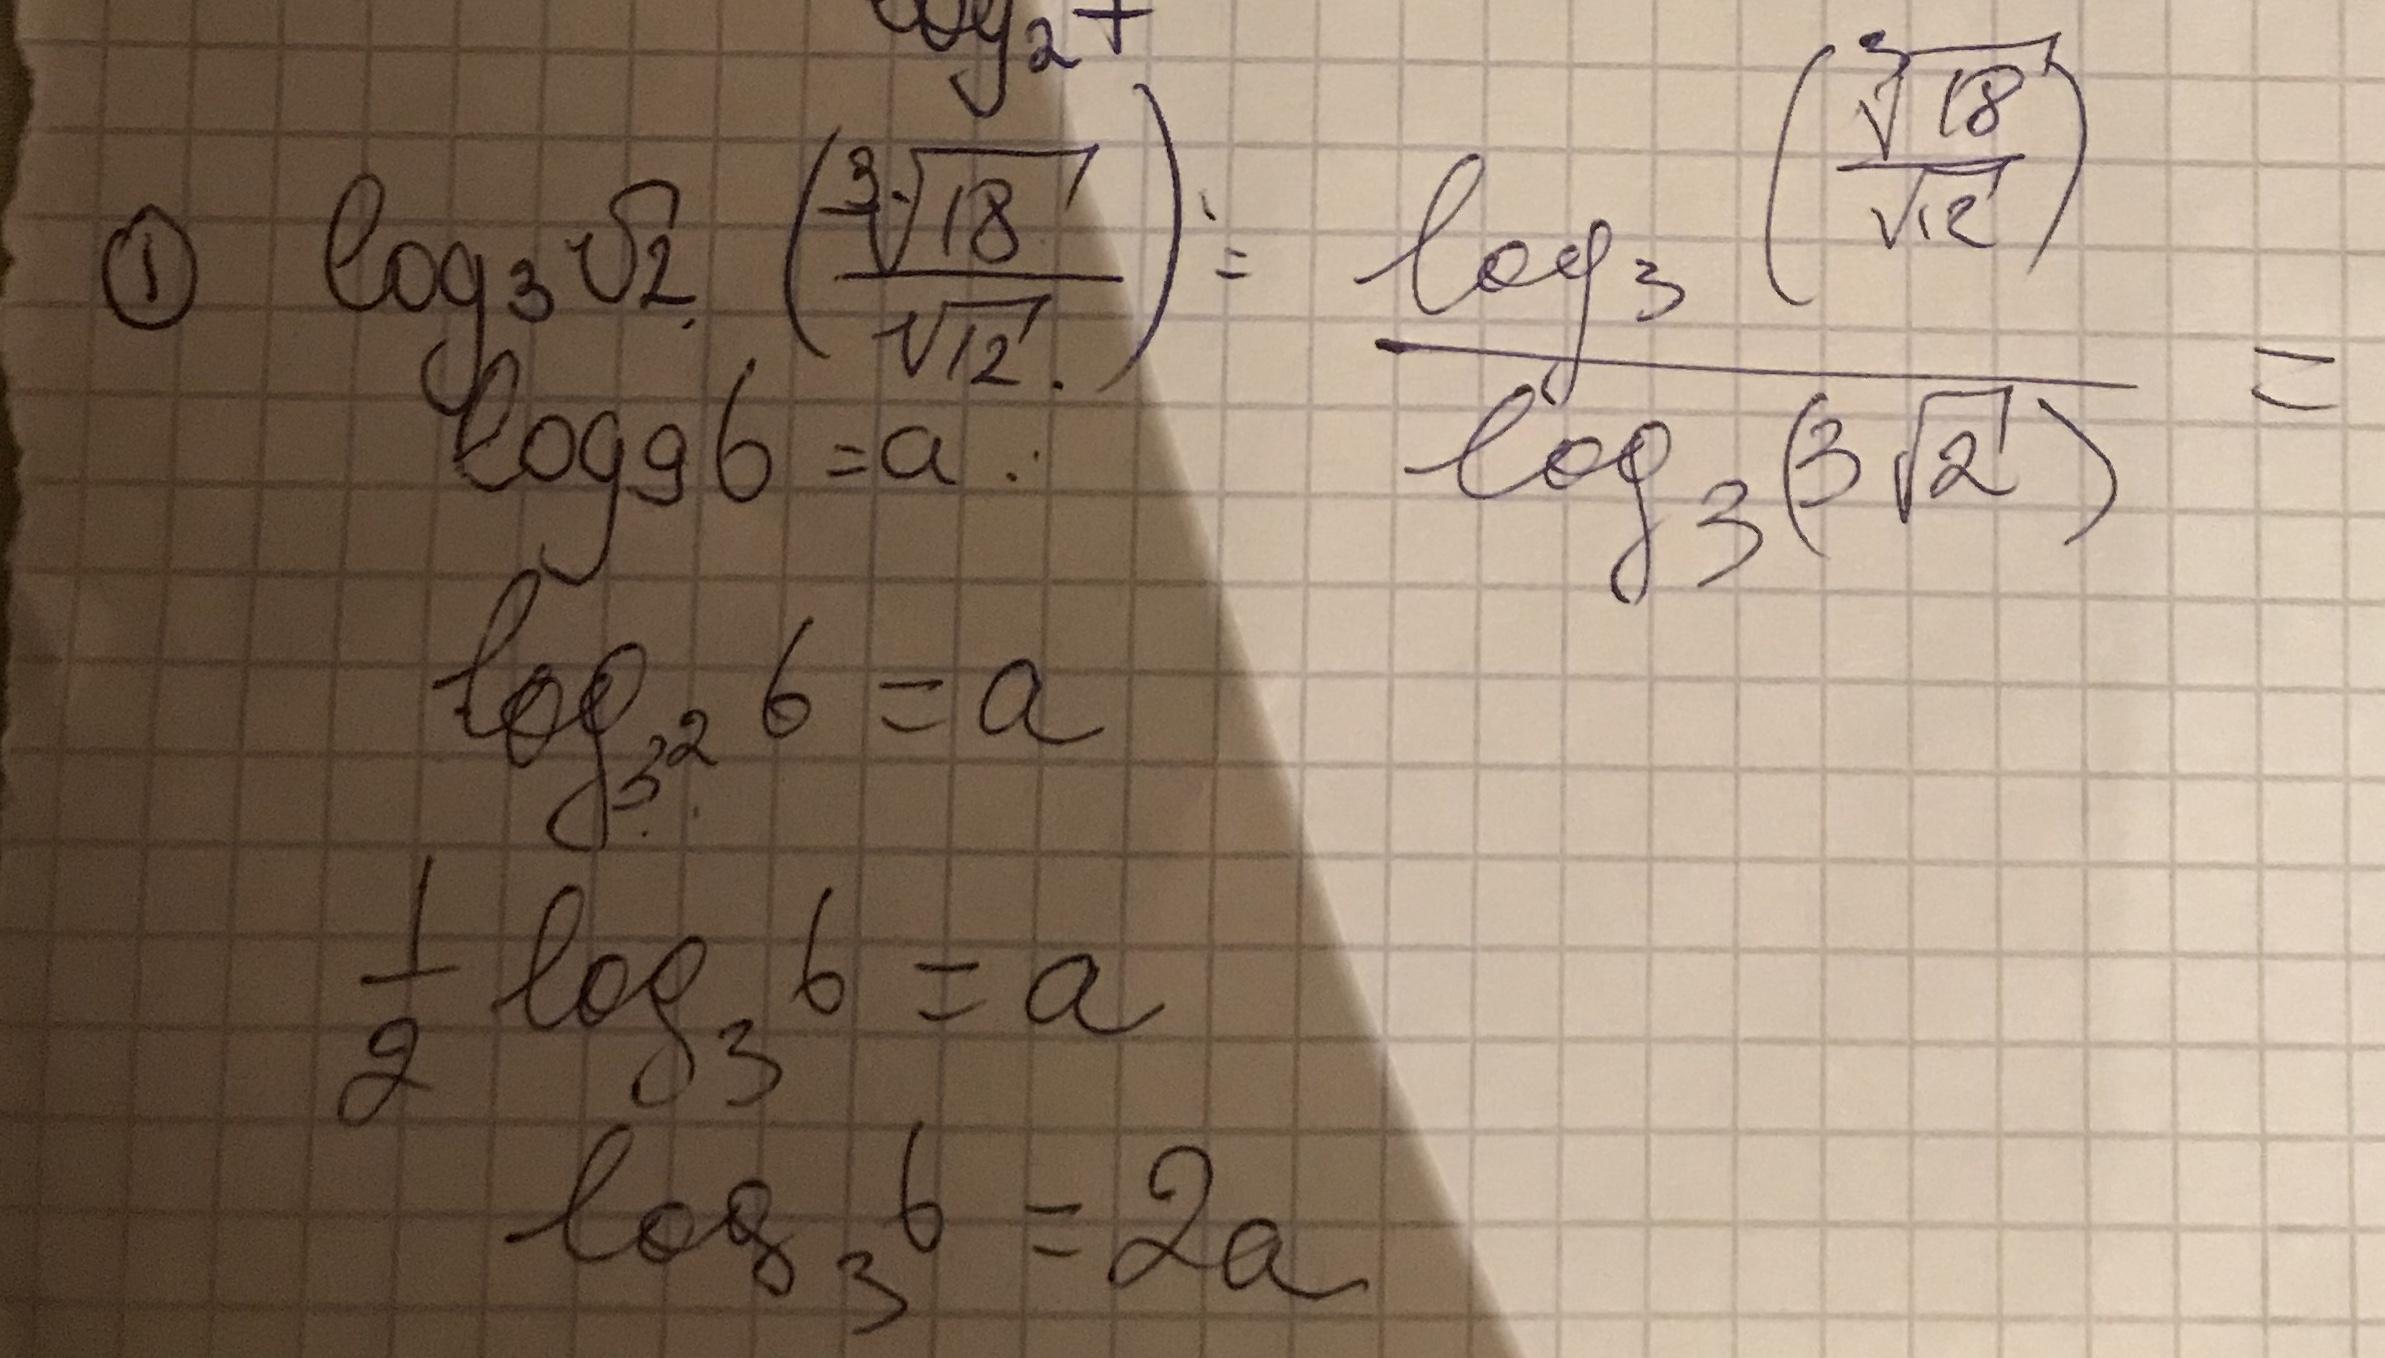 log₂ +
① log₃√2 (∛18 / √12) = log₃ (∛18 / √12) / log₃ (3√2) =
log₉ 6 = a
log₃² 6 = a
1/2 log₃ 6 = a
log₃ 6 = 2a